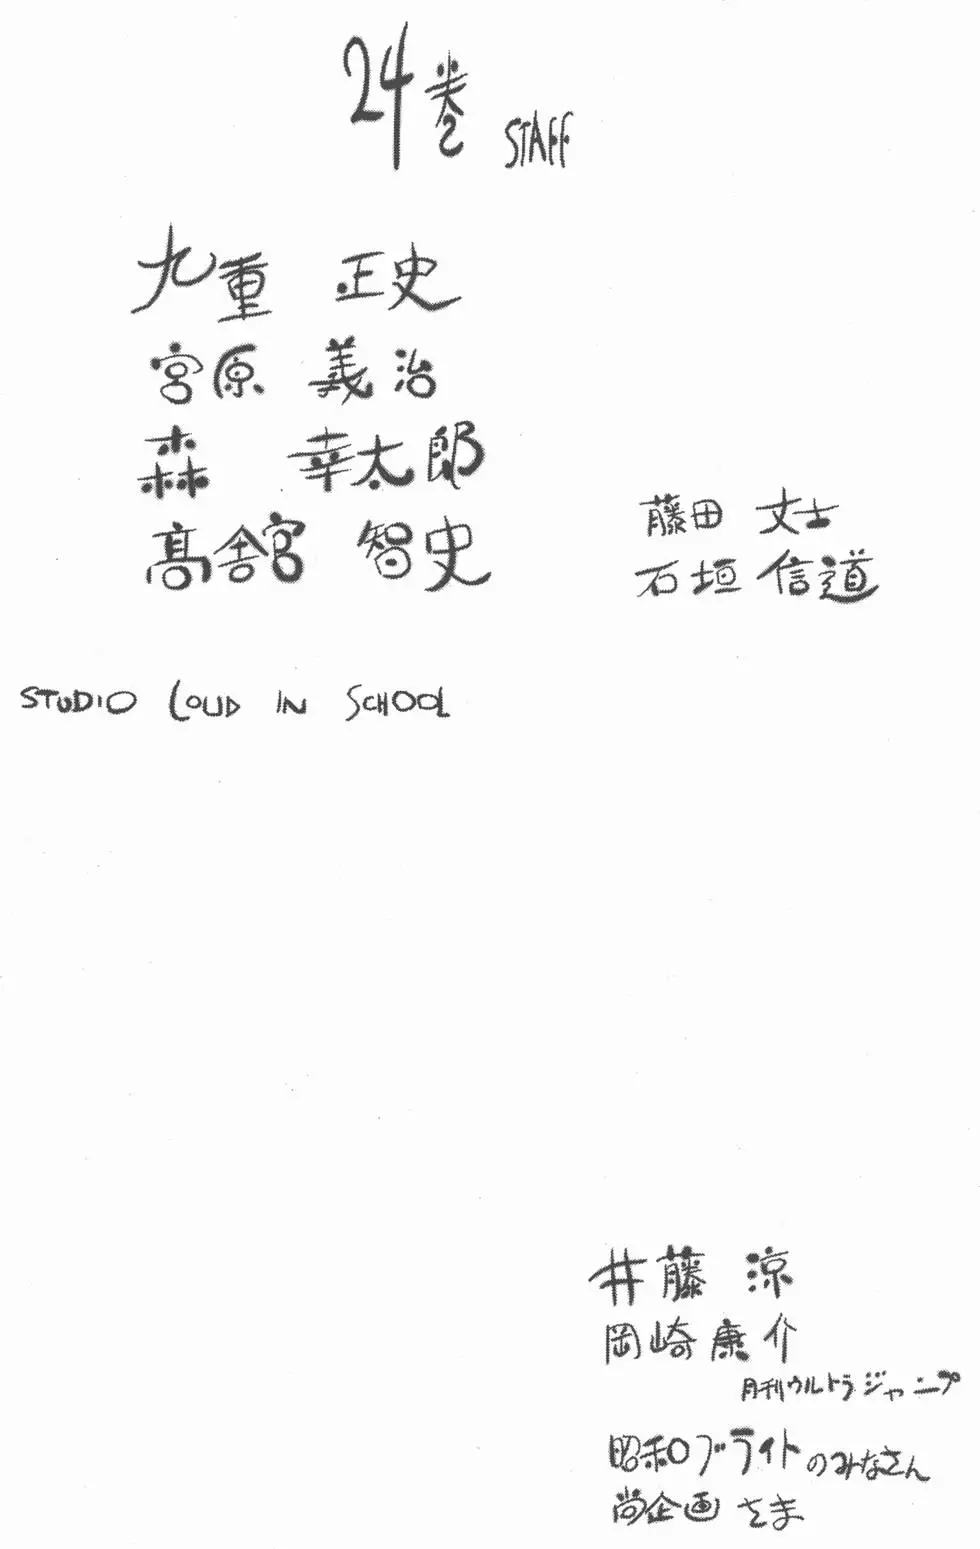 24巻 STAFF
九重 正史
宮原 義治
森 幸太郎
髙舘 智史
藤田 丈士
石垣 信道
STUDIO LOUD IN SCHOOL
井藤 涼
岡崎康介
月刊ウルトラジャンプ
昭和ブライトのみなさん
尚企画さま